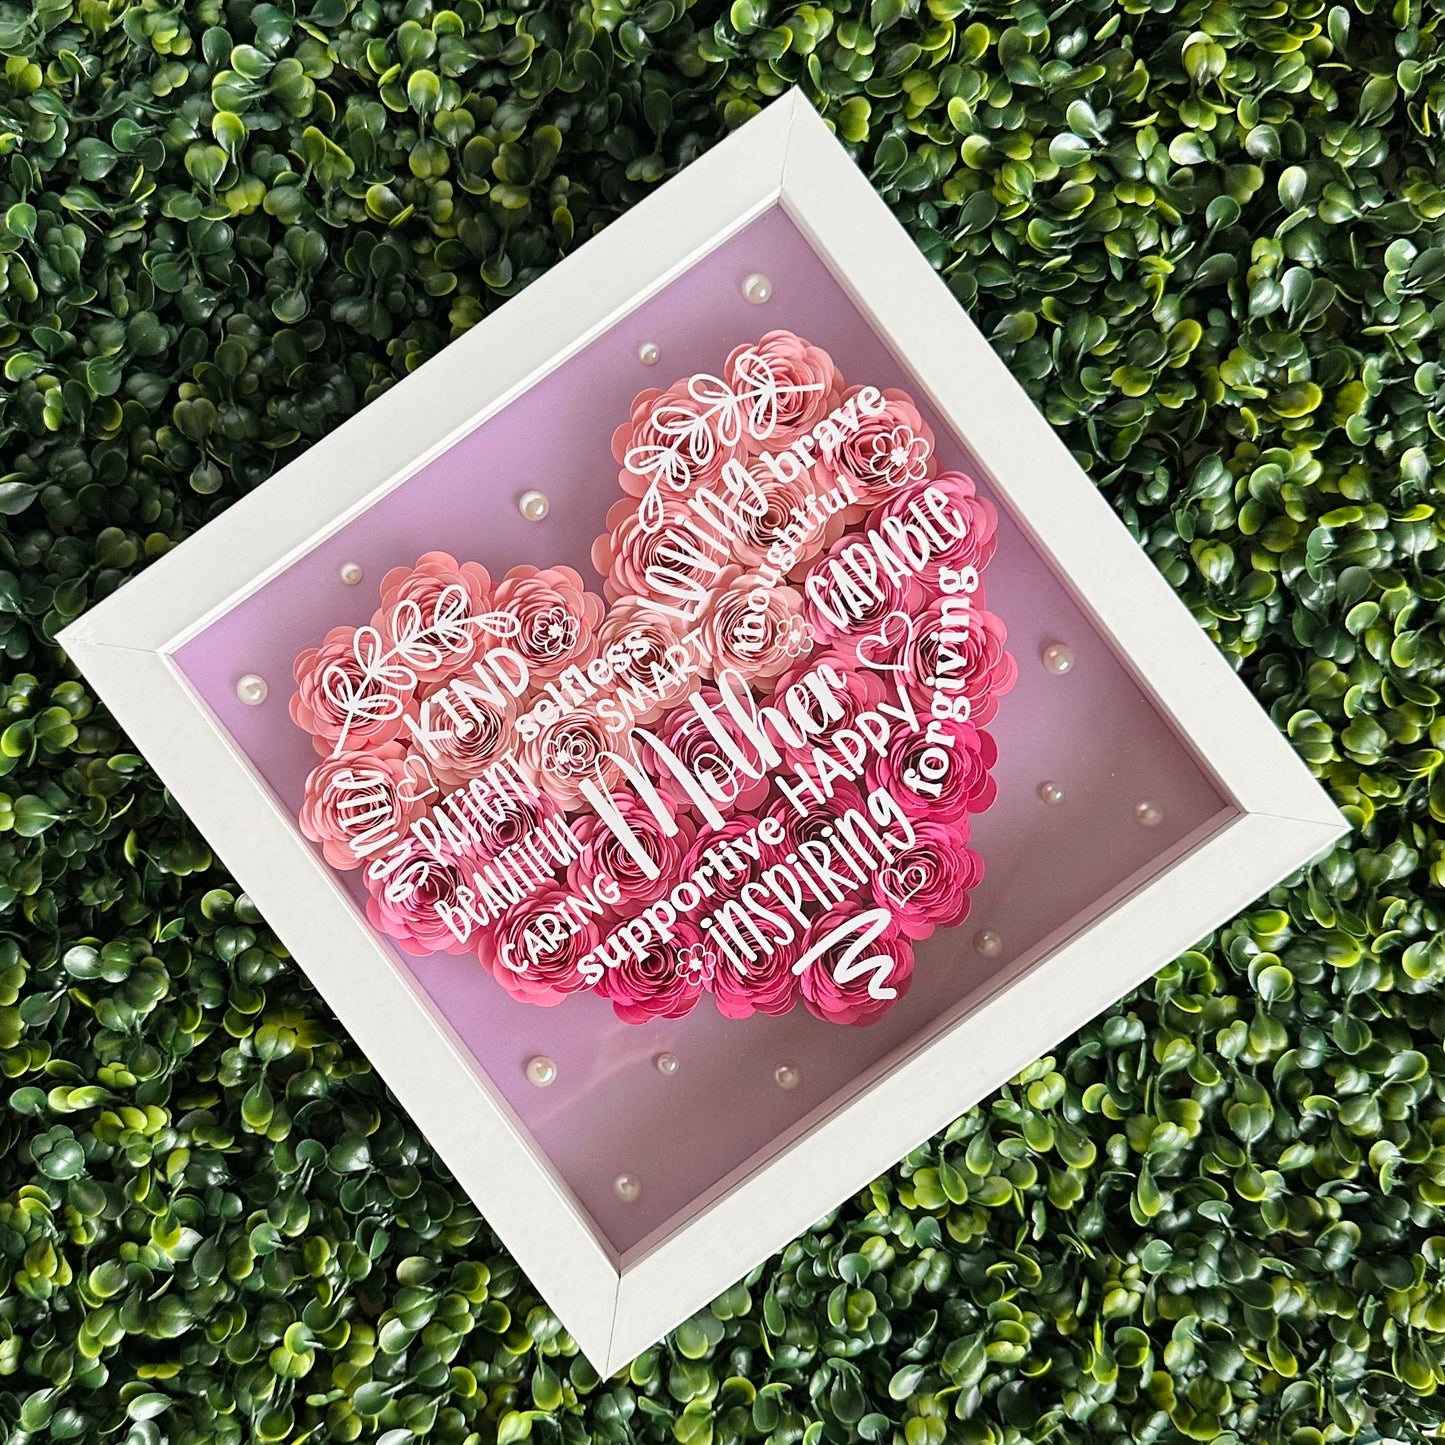 Loving brave
thoughtful
CAPABLE
KIND selfless
SMART
gentle PATIENT
Mother
HAPPY
forgiving
BEAUTIFUL
CARING
supportive
INSPIRING